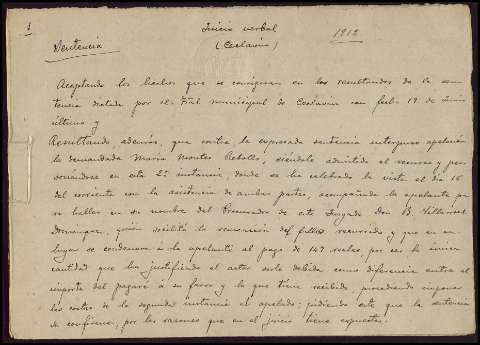 1
Juicio verbal
(Ceclavin)
1912
Sentencia
Aceptando los hechos que se consignan en los resultandos de la sen-
tencia dictada por el Tral municipal de Ceclavin con fecha 19 de Junio
último y
Resultando, además, que contra la expresada sentencia interpuso apelación
la demandada Maria Montes Rebollo, siéndole admitido el recurso y per-
sonandose en esta 2ª instancia, donde se ha celebrado la vista el dia 16
del corriente con la asistencia de ambas partes, acompañando la apelante pa
ra hablar en su nombre del Procurador de este Juzgado Don B. Villarroel
Dominguez, quien solicitó la revocación del fallo recurrido y que en su
lugar se condenara á la apelante al pago de 147 reales por ser la única
cantidad que ha justificado el actor serle debida como diferencia entre el
importe del pagaré á su favor y lo que tiene recibido, procediendo imponer
las costas de la segunda instancia al apelado; pidiendo este que la sentencia
se confirme, por las razones que en el juicio tiene expuestas.